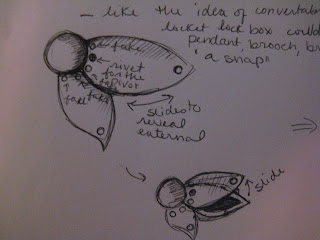 - like the idea of convertab
locket lock box coul
pendant, brooch, br
"a snap"
fake
rivet
for the
pivot
fake
fake
slides to
reveal
external
slide